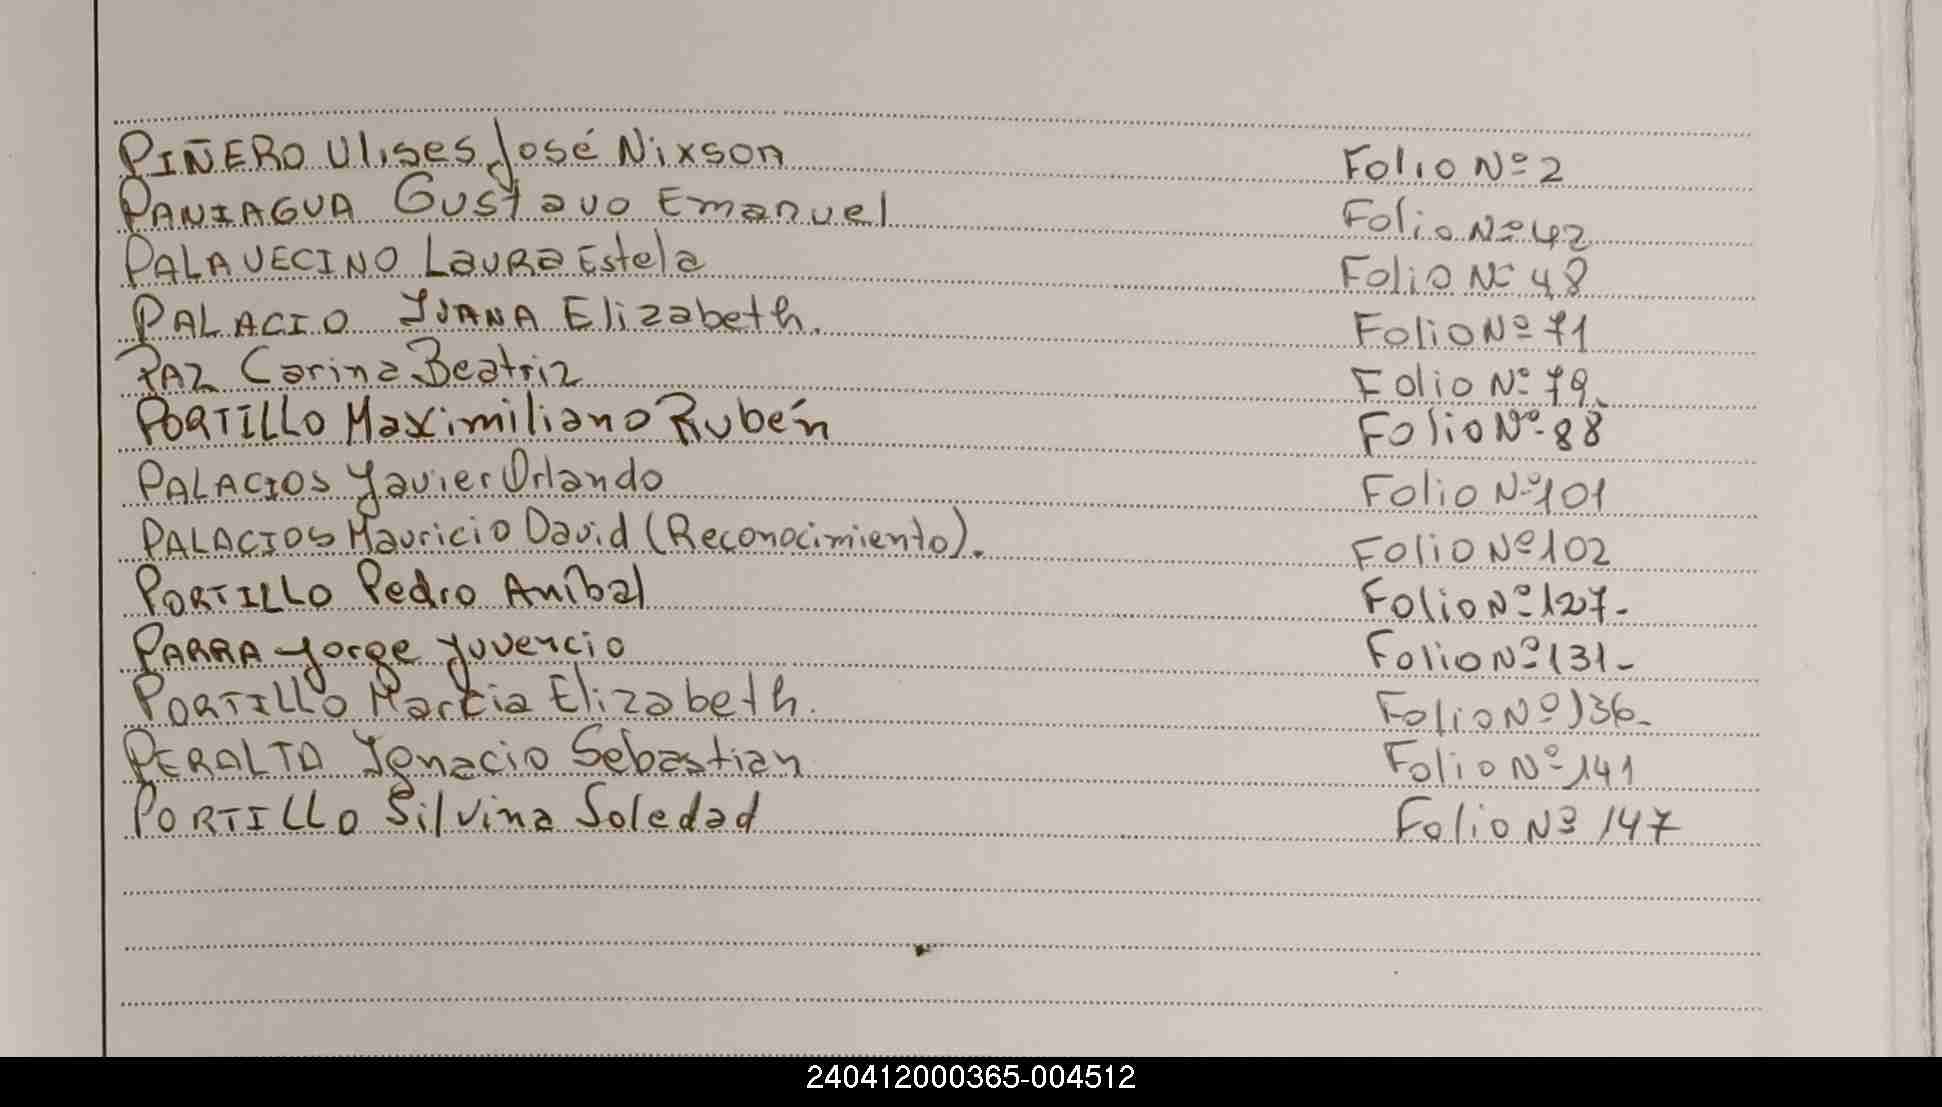 PIÑERO Ulises José Nixson Folio Nº 2
PANIAGUA Gustavo Emanuel Folio Nº 42
PALAVECINO Laura Estela Folio Nº 48
PALACIO JUANA Elizabeth. Folio Nº 71
PAZ Carina Beatriz Folio Nº 79.
PORTILLO Maximiliano Rubén Folio Nº 88
PALACIOS Javier Orlando Folio Nº 101
PALACIOS Mauricio David (Reconocimiento). Folio Nº 102
PORTILLO Pedro Aníbal Folio Nº 127-
PARRA Jorge Juvencio Folio Nº 131-
PORTILLO Marcia Elizabeth. Folio Nº 136-
PERALTA Ignacio Sebastian Folio Nº 141
PORTILLO Silvina Soledad Folio Nº 147
240412000365-004512